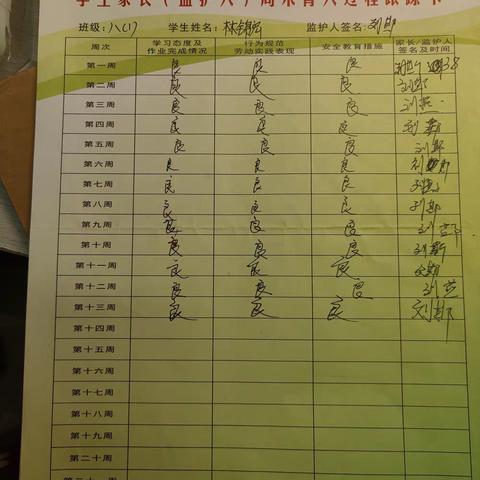 学生家长（监护人）周末育人过程跟踪卡
班级: 八(1) 学生姓名: 监护人签名:
周次 学习态度及作业完成情况 行为规范劳动实践表现 安全教育措施 家长/监护人签名及时间
第一周 良 良 良
第二周 良 良 良
第三周 良 良 良
第四周 良 良 良
第五周 良 良 良
第六周 良 良 良
第七周 良 良 良
第八周 良 良 良
第九周 良 良 良
第十周 良 良 良
第十一周 良 良 良
第十二周 良 良 良
第十三周 良 良 良
第十四周
第十五周
第十六周
第十七周
第十八周
第十九周
第二十周